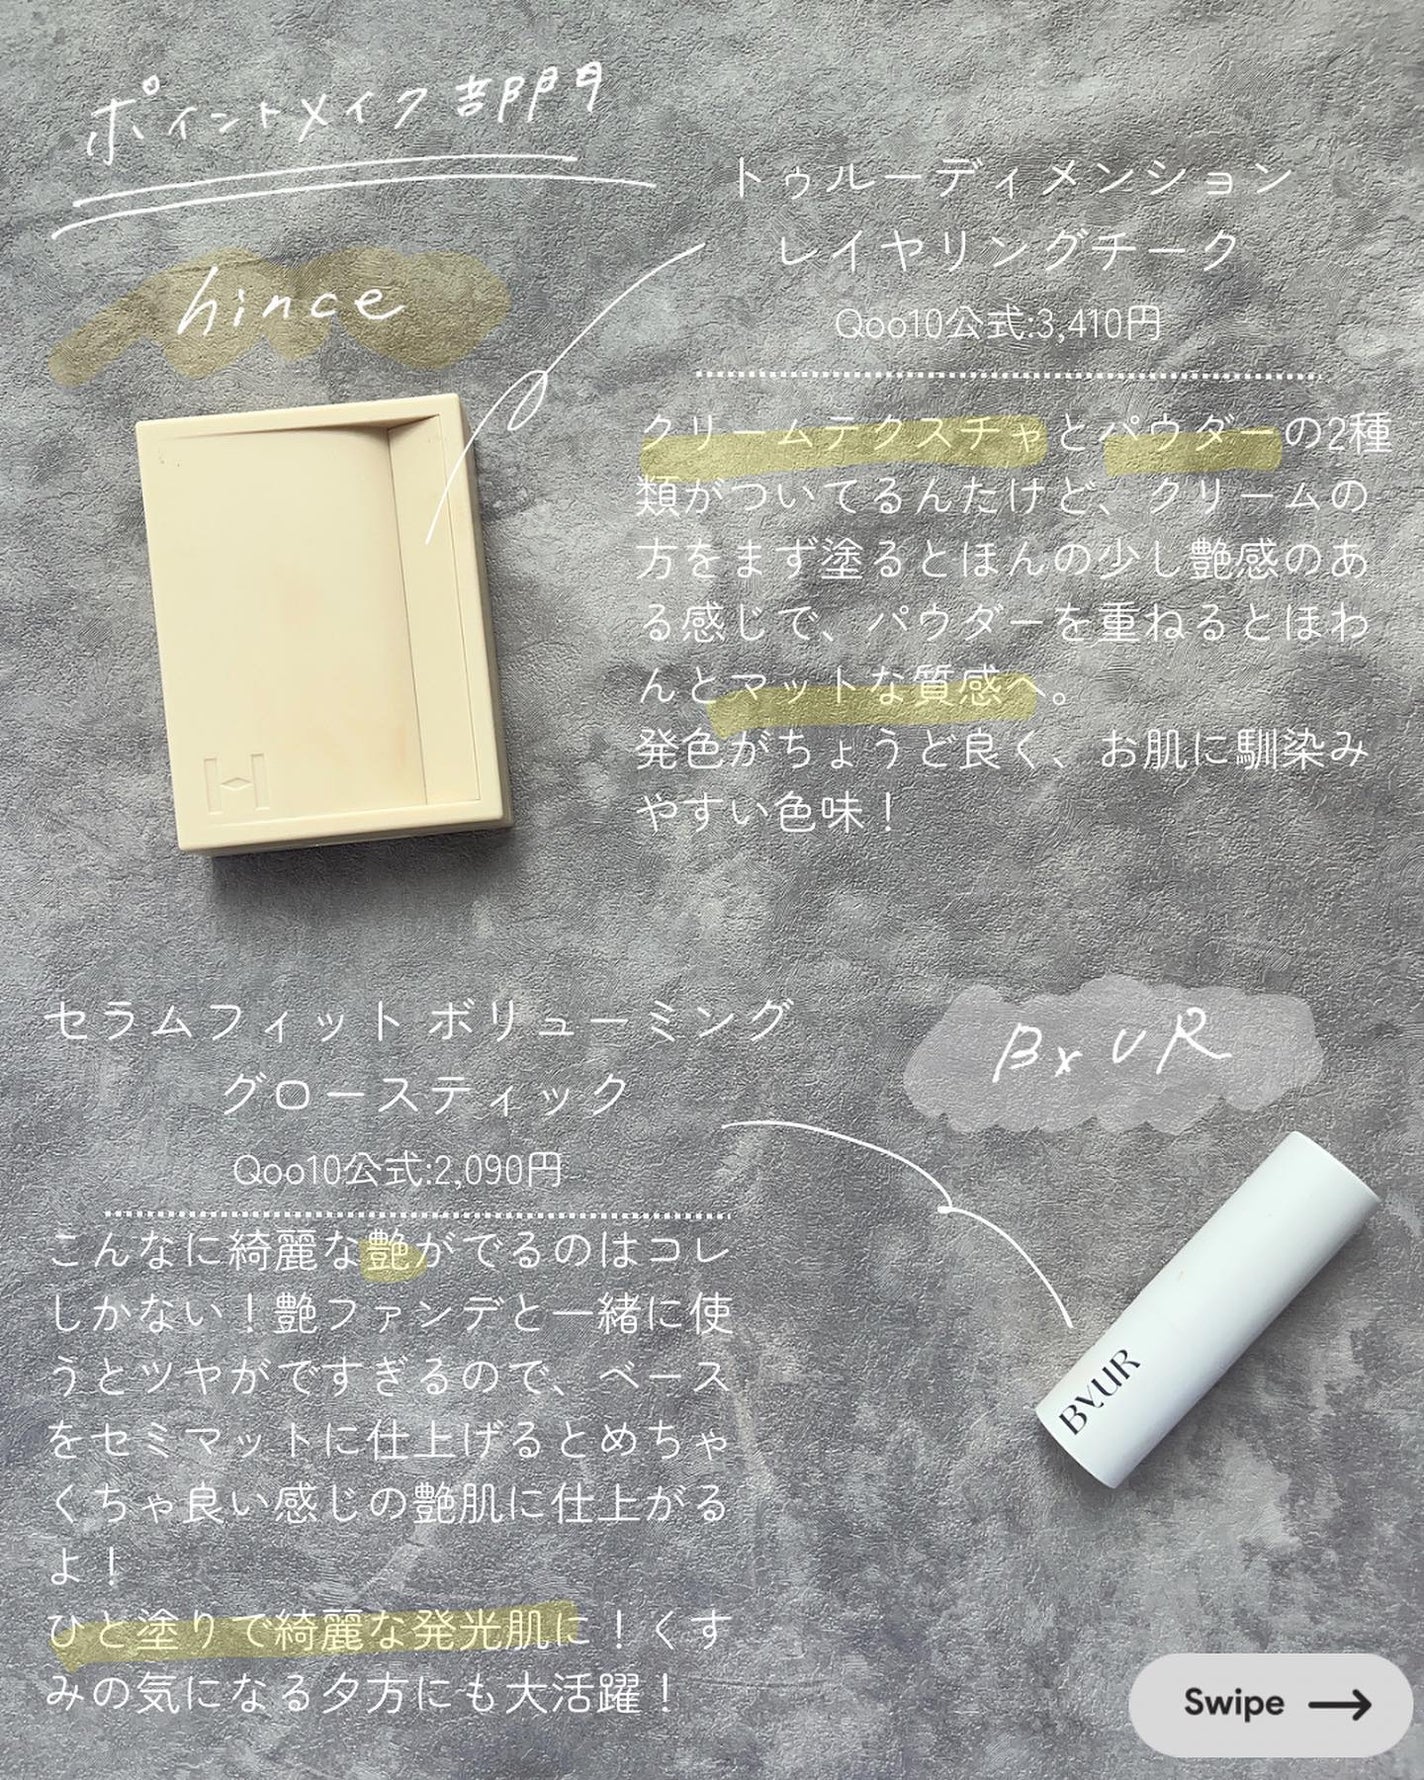 ポイントメイク部門
hince
トゥルーディメンション
レイヤリングチーク
Qoo10公式:3,410円
クリームテクスチャとパウダーの2種
類がついてるんたけど、クリームの
方をまず塗るとほんの少し艶感のあ
る感じで、パウダーを重ねるとほわ
んとマットな質感へ。
発色がちょうど良く、お肌に馴染み
やすい色味！
H
セラムフィット ボリューミング
グロースティック
Qoo10公式:2,090円
ByUR
こんなに綺麗な艶がでるのはコレ
しかない！艶ファンデと一緒に使
うとツヤがですぎるので、ベース
をセミマットに仕上げるとめちゃ
くちゃ良い感じの艶肌に仕上がる
よ！
ひと塗りで綺麗な発光肌に！くす
みの気になる夕方にも大活躍！
BYUR
Swipe →